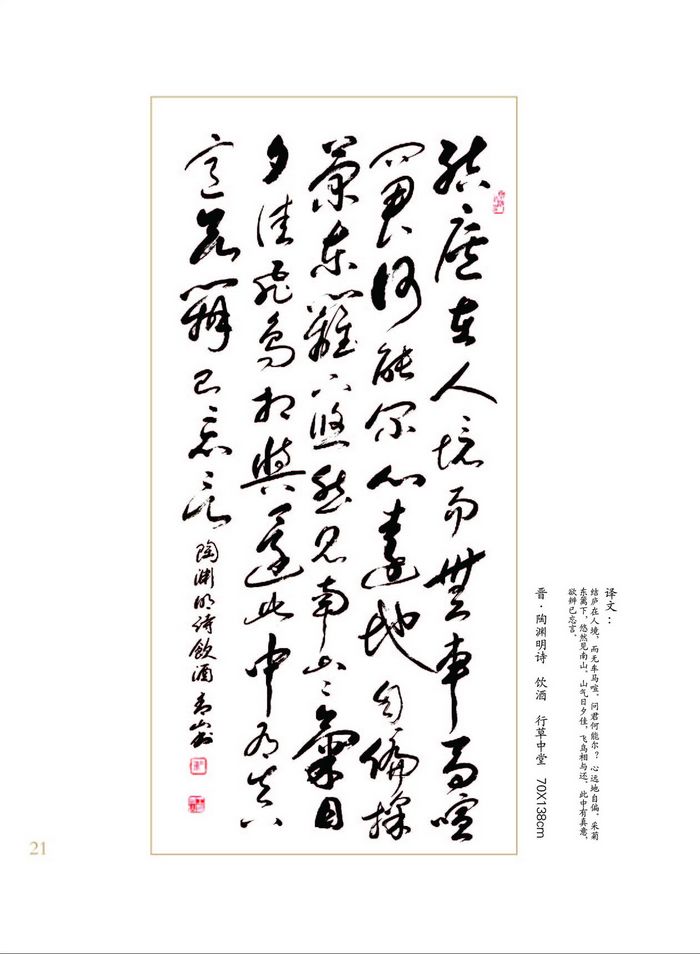 結廬在人境而無車馬喧
問君何能尔心遠地自偏採
菊東籬下悠然見南山〻氣日
夕佳飛鳥相與還此中有真
意欲辨已忘言 陶淵明詩飲酒 青山书
译文：
结庐在人境，而无车马喧。问君何能尔？心远地自偏。采菊
东篱下，悠然见南山。山气日夕佳，飞鸟相与还。此中有真意，
欲辨已忘言。
晋·陶渊明诗 饮酒 行草中堂 70X138cm
21